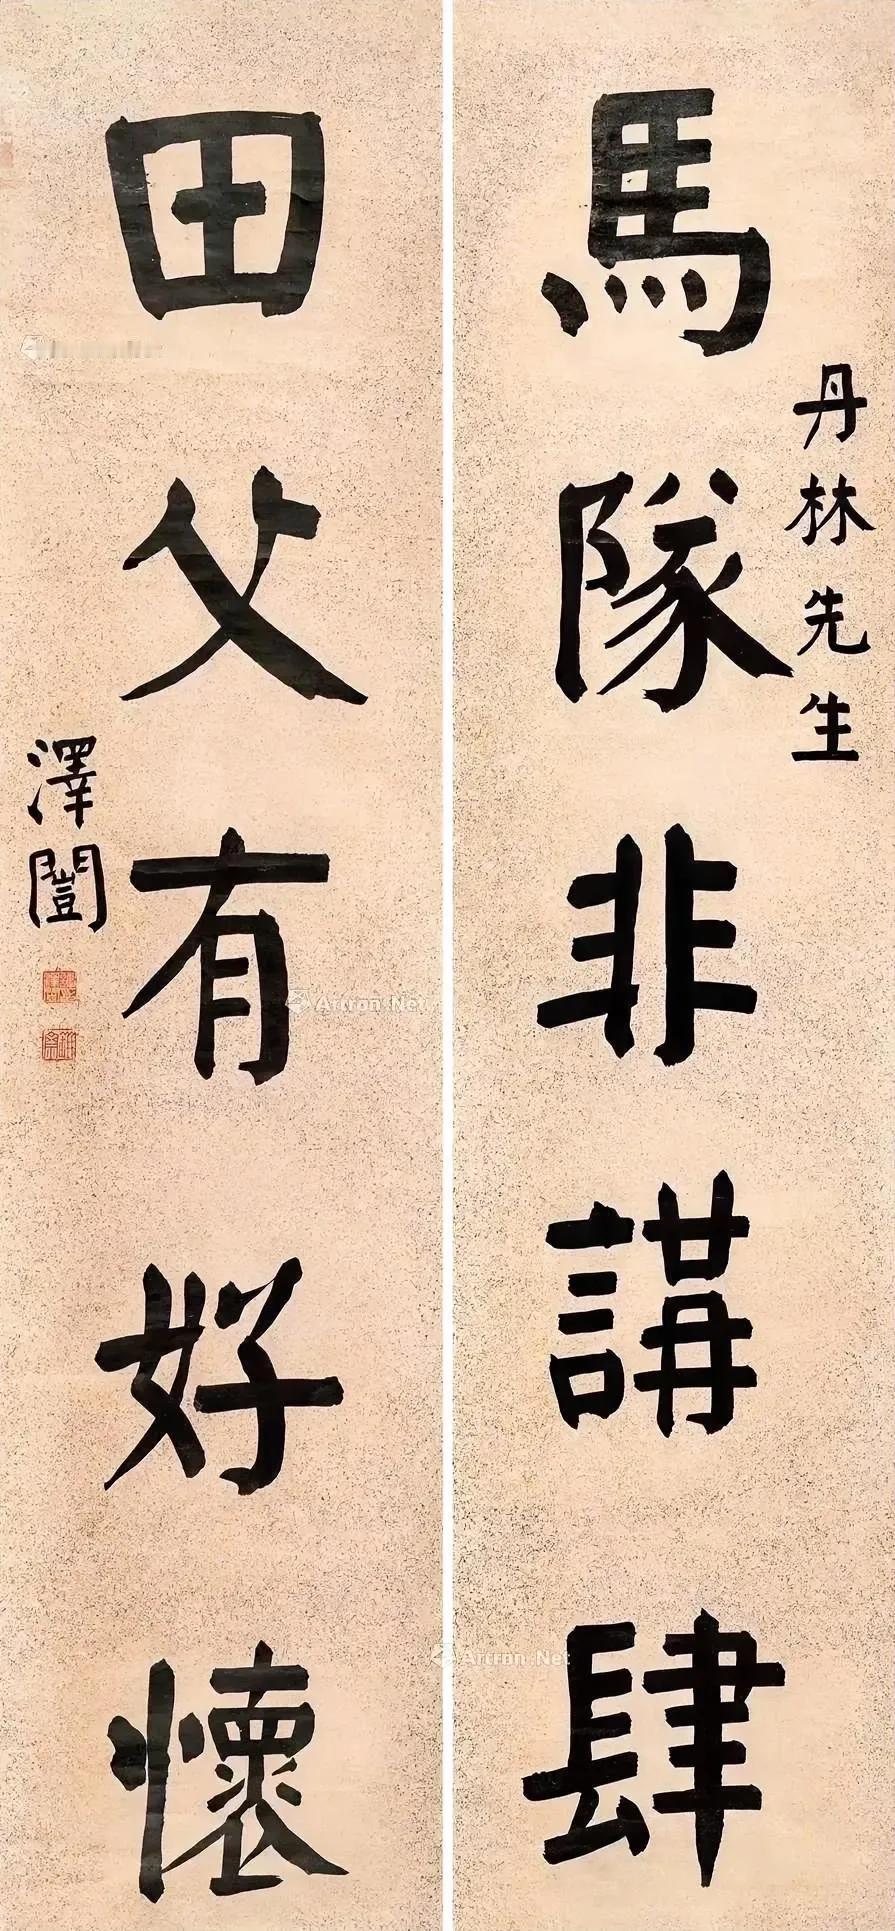 丹林先生
馬隊非講肆
田父有好懷
澤闓
Artron.Net
Artron.Net